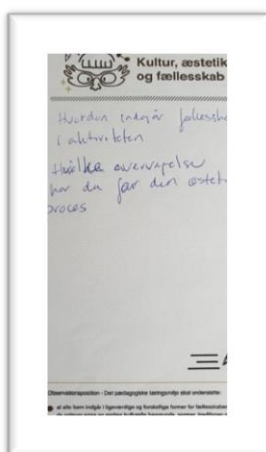 Kultur, æstetik
og fællesskab
Hvordan indgår fællessk
i aktiviteten
Hvilke overvejelser
har du før den æstet
proces
Observationsposition - Det pædagogiske læringsmiljø skal understøtte:
at alle børn indgår i ligeværdige og forskellige former for fællesskaber